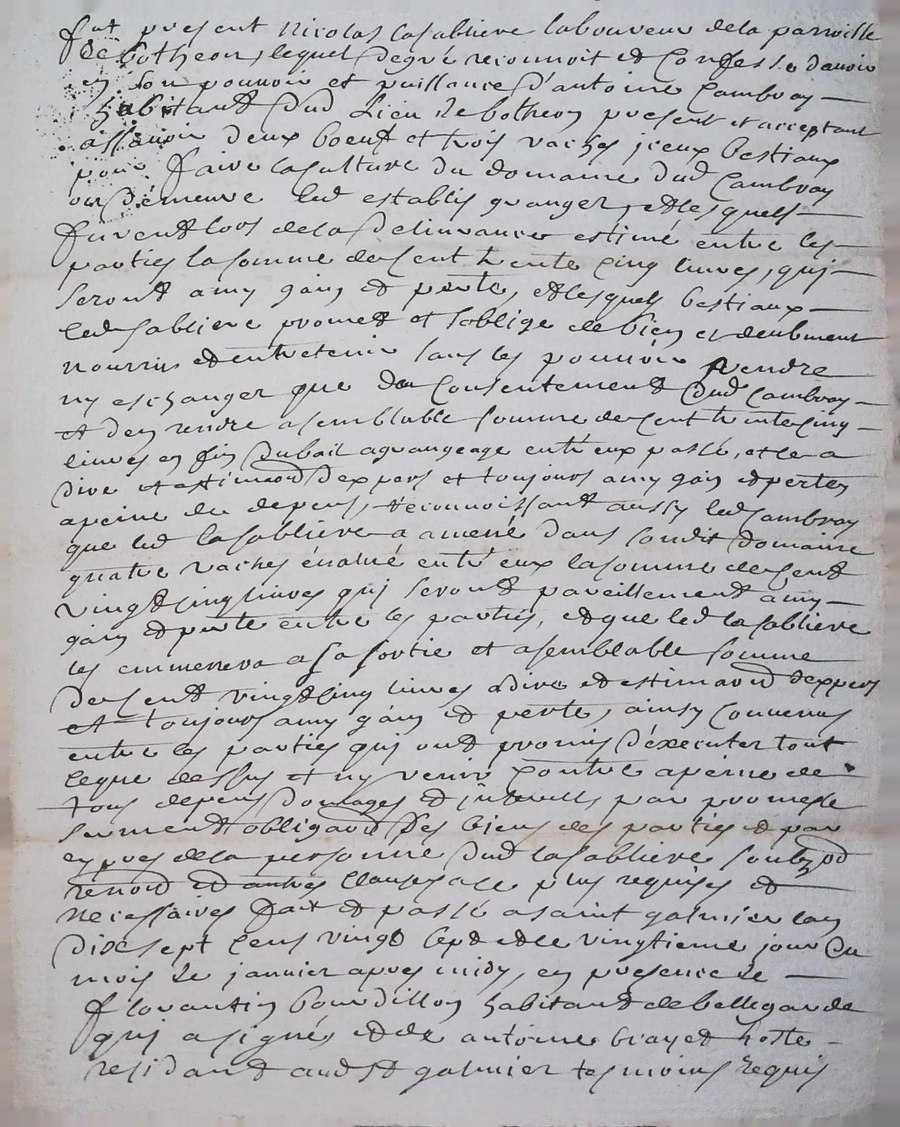 fut present nicolas lasabliere laboureur de la parroisse
de botheon, lequel de gré reconnoit et confesse d'avoir
en son pouvoir et puissance d'antoine Cambray
habitant dud lieu de botheon present et acceptant
assavoir deux boeuf et trois vaches iceux bestiaux
pour faire la culture du domaine dud Cambray
ou demeure led establis granger, et lesquels
furent lors de la delivrance estimé entre les
parties la somme de cent trente cinq livres, qui
seront a my gain et perte, et lesquels bestiaux
led sabliere promet et s'oblige de bien et deubment
nourrir et entretenir sans les pouvoir vendre
ny eschanger que du consentement dud Cambray
et d'en rendre a semblable somme de cent trente cinq
livres en fin du bail a grangeage entre eux passé, et ce a
dire et estimaon d'expers et toujours a my gain et pertes
a peine de depens, reconnoissant aussy led Cambray
que led lasabliere a amené dans sondit domaine
quatre vaches évalué entre eux la somme de cent
vingt cinq livres qui seront pareillement a my
gain et perte entre les parties, et que led lasabliere
les emmenera a sa sortie et a semblable somme
de cent vingt cinq livres a dire et estimaon d'expers
et toujours a my gain et perte, ainsy convenus
entre les parties qui ont promis d'éxecuter tout
ce que dessus et ny venir contre a peine de
tous depens domages et interests, par promesse
serment obligaon des biens des parties et par
expres de la personne dud lasabliere
renon et autres clauses a ce plus requises et
necessaires fait et passé a saint galmier l'an
dix sept cens vingt sept et le vingtieme jour du
mois de janvier apres midy, en presence de
florantin bourdillon habitant de bellegarde
qui a signé et de antoine hoste
residant aud st galmier tesmoins requis